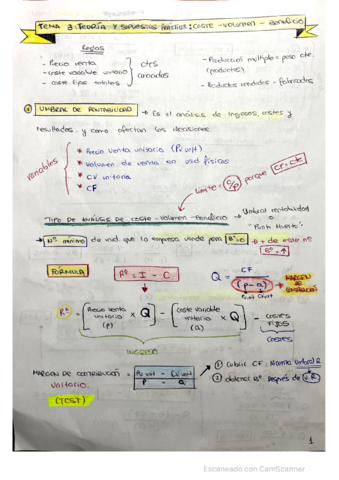 TEMA 3: TEORÍA Y SUPUESTOS PRÁCTICOS: COSTE - VOLUMEN - BENEFICIO
Reglas
- Precio venta
- coste variable unitario
- coste fijos totales
ctes
conocidos
- Producción múltiple = peso cte.
(productos)
- Productos vendidos = Fabricados
UMBRAL DE RENTABILIDAD → Es el análisis de ingresos, costes y
resultados y como afectan las decisiones.
variables
* Precio venta unitario (Pv unit)
* Volumen de venta en ud físicas
* CV unitario
* CF
limite = c/p porque CF = Cte
TIPO DE ANÁLISIS DE COSTE - VOLUMEN - BENEFICIO → Umbral rentabilidad
"Punto Muerto"
→ Nº mínimo de und. que la empresa vende para Bº=0 → + de este nº
Bº = ↑
FÓRMULA
Rº = I - C
Q = CF / (p - a)
Pvunit CVunit
MARGEN DE CONTRIBUCIÓN
Rº = [Precio venta unitario (p) x Q] - [Coste variable unitario (a) x Q] - COSTES FIJOS
INGRESO
COSTES
MARGEN DE CONTRIBUCIÓN = Pv unit - CV unit
unitario.
p - a
(TEST)
① Cubrir CF:
② obtener Bº: Después de
1
Escaneado con CamScanner